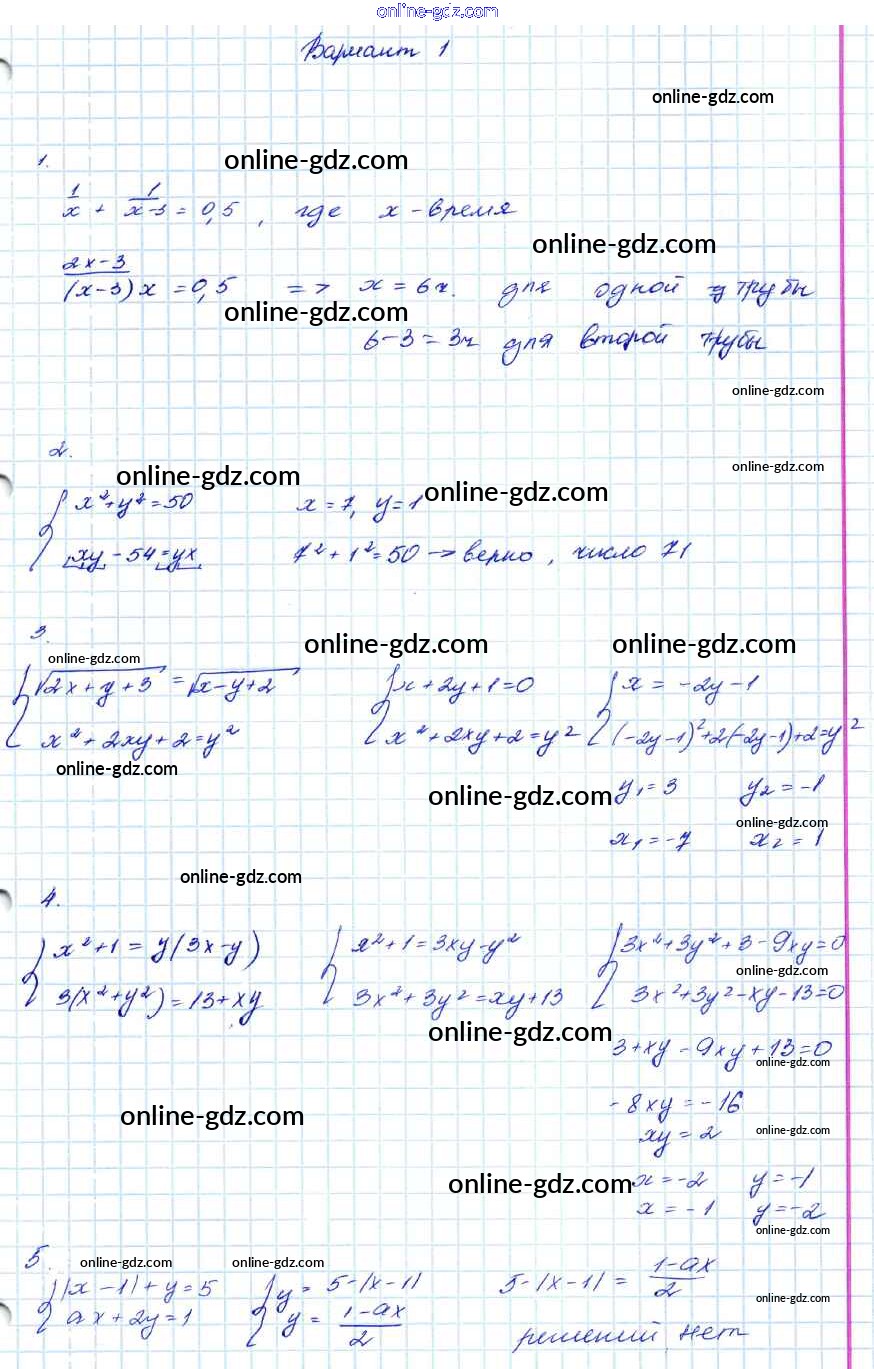 online-gdz.com
Вариант 1
online-gdz.com
1.
online-gdz.com
1/x + 1/(x-3) = 0,5, где x - время
online-gdz.com
(2x-3)/((x-3)x) = 0,5 => x = 6ч. для одной трубы
online-gdz.com
6-3 = 3ч для второй трубы
online-gdz.com
2.
online-gdz.com
online-gdz.com
online-gdz.com
{ x²+y²=50 x=7, y=1
xy - 54 = yx 7² + 1² = 50 → верно, число 71
3.
online-gdz.com online-gdz.com
online-gdz.com
{ √2x+y+3 = √x-y+2 { x+2y+1=0 { x = -2y-1
x²+2xy+2=y² x²+2xy+2=y² (-2y-1)²+2(-2y-1)+2=y²
online-gdz.com
online-gdz.com
y₁=3 y₂=-1
online-gdz.com
x₁=-7 x₂=1
online-gdz.com
4.
{ x²+1=y(3x-y) { x²+1=3xy-y² { 3x²+3y²+3-9xy=0
online-gdz.com
3(x²+y²)=13+xy 3x²+3y²=xy+13 3x²+3y²-xy-13=0
online-gdz.com
3+xy-9xy+13=0
online-gdz.com
-8xy=-16
online-gdz.com
xy=2
online-gdz.com
online-gdz.com
x=-2 y=-1
x=-1 y=-2
online-gdz.com
5.
online-gdz.com online-gdz.com
{ |x-1|+y=5 { y=5-|x-1| 5-|x-1| = (1-ax)/2
online-gdz.com
ax+2y=1 y=(1-ax)/2
решений нет